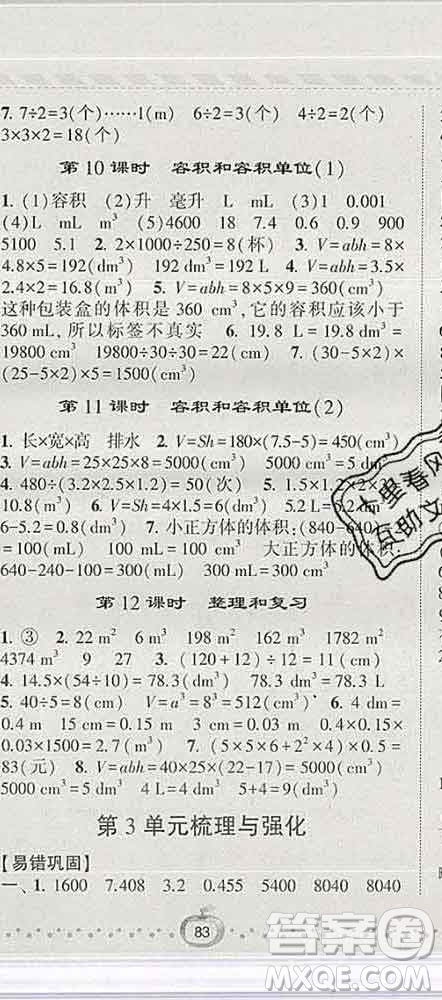 7. 7÷2=3(个)……1(m)  6÷2=3(个)  4÷2=2(个)
3×3×2=18(个)
第 10 课时  容积和容积单位(1)
1. (1)容积  (2)升  毫升  L  mL  (3)1  0.001
(4)L  mL  m³  (5)4600  18  7.4  0.6  0.9  900
5100  5.1  2. 2×1000÷250=8(杯)  3. V=abh=8×
4.8×5=192(dm³)  192 dm³=192 L  4. V=abh=3.5×
2.4×2=16.8(dm³)  5. V=abh=8×5×9=360(cm³)
这种包装盒的体积是 360 cm³,它的容积应该小于
360 mL,所以标签不真实  6. 19.8 L=19.8 dm³=
19800 cm³  19800÷30÷30=22(cm)  7. (30-5×2)×
(25-5×2)×5=1500(cm³)
第 11 课时  容积和容积单位(2)
1. 长×宽×高  排水  2. V=Sh=180×(7.5-5)=450(cm³)
3. V=abh=25×25×8=5000(cm³)  5000 cm³=5000 mL
4. 480÷(3.2×2.5×1.2)=50(次)  5. 1.5×1.2×
10.8(m³)  6. V=Sh=4×1.5=6(dm³)  5.2 L=5.2 dm³
6-5.2=0.8(dm³)  7. 小正方体的体积:(840-640)÷
=100(mL)  100 mL=100 cm³  大正方体的体积:
640-240-100=300(mL)  300 mL=300 cm³
第 12 课时  整理和复习
1. ③  2. 22 m²  6 m³  198 m²  162 m³  1782 m²
4374 m³  9  27  3. (120+12)÷12=11(cm)
4. 14.5×(54÷10)=78.3(dm³)  78.3 dm³=78.3 L
5. 40÷5=8(cm)  V=a³=8³=512(cm³)  6. 4 dm=
0.4 m  15 cm=0.15 m  3 cm=0.03 m  0.4×0.15×
0.03×1500=2.7(m³)  7. (5×5×6+2²×4)×0.5=
83(元)  8. V=abh=40×25×(22-17)=5000(cm³)
5000 cm³=5 dm³  4 L=4 dm³  5+4=9(dm³)
第 3 单元梳理与强化
【易错巩固】
一、1. 1600  7.408  3.2  0.455  5400  8040  8040
83
十里春风
互助文
答案圈
MXQE.COM